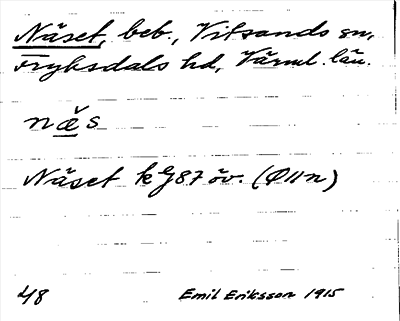 Näset, beb., Vitsands sn,
Fryksdals hd, Värml. län.
næ̆s
Näset kG87 öv. (Ø11n)
48 Emil Eriksson 1915